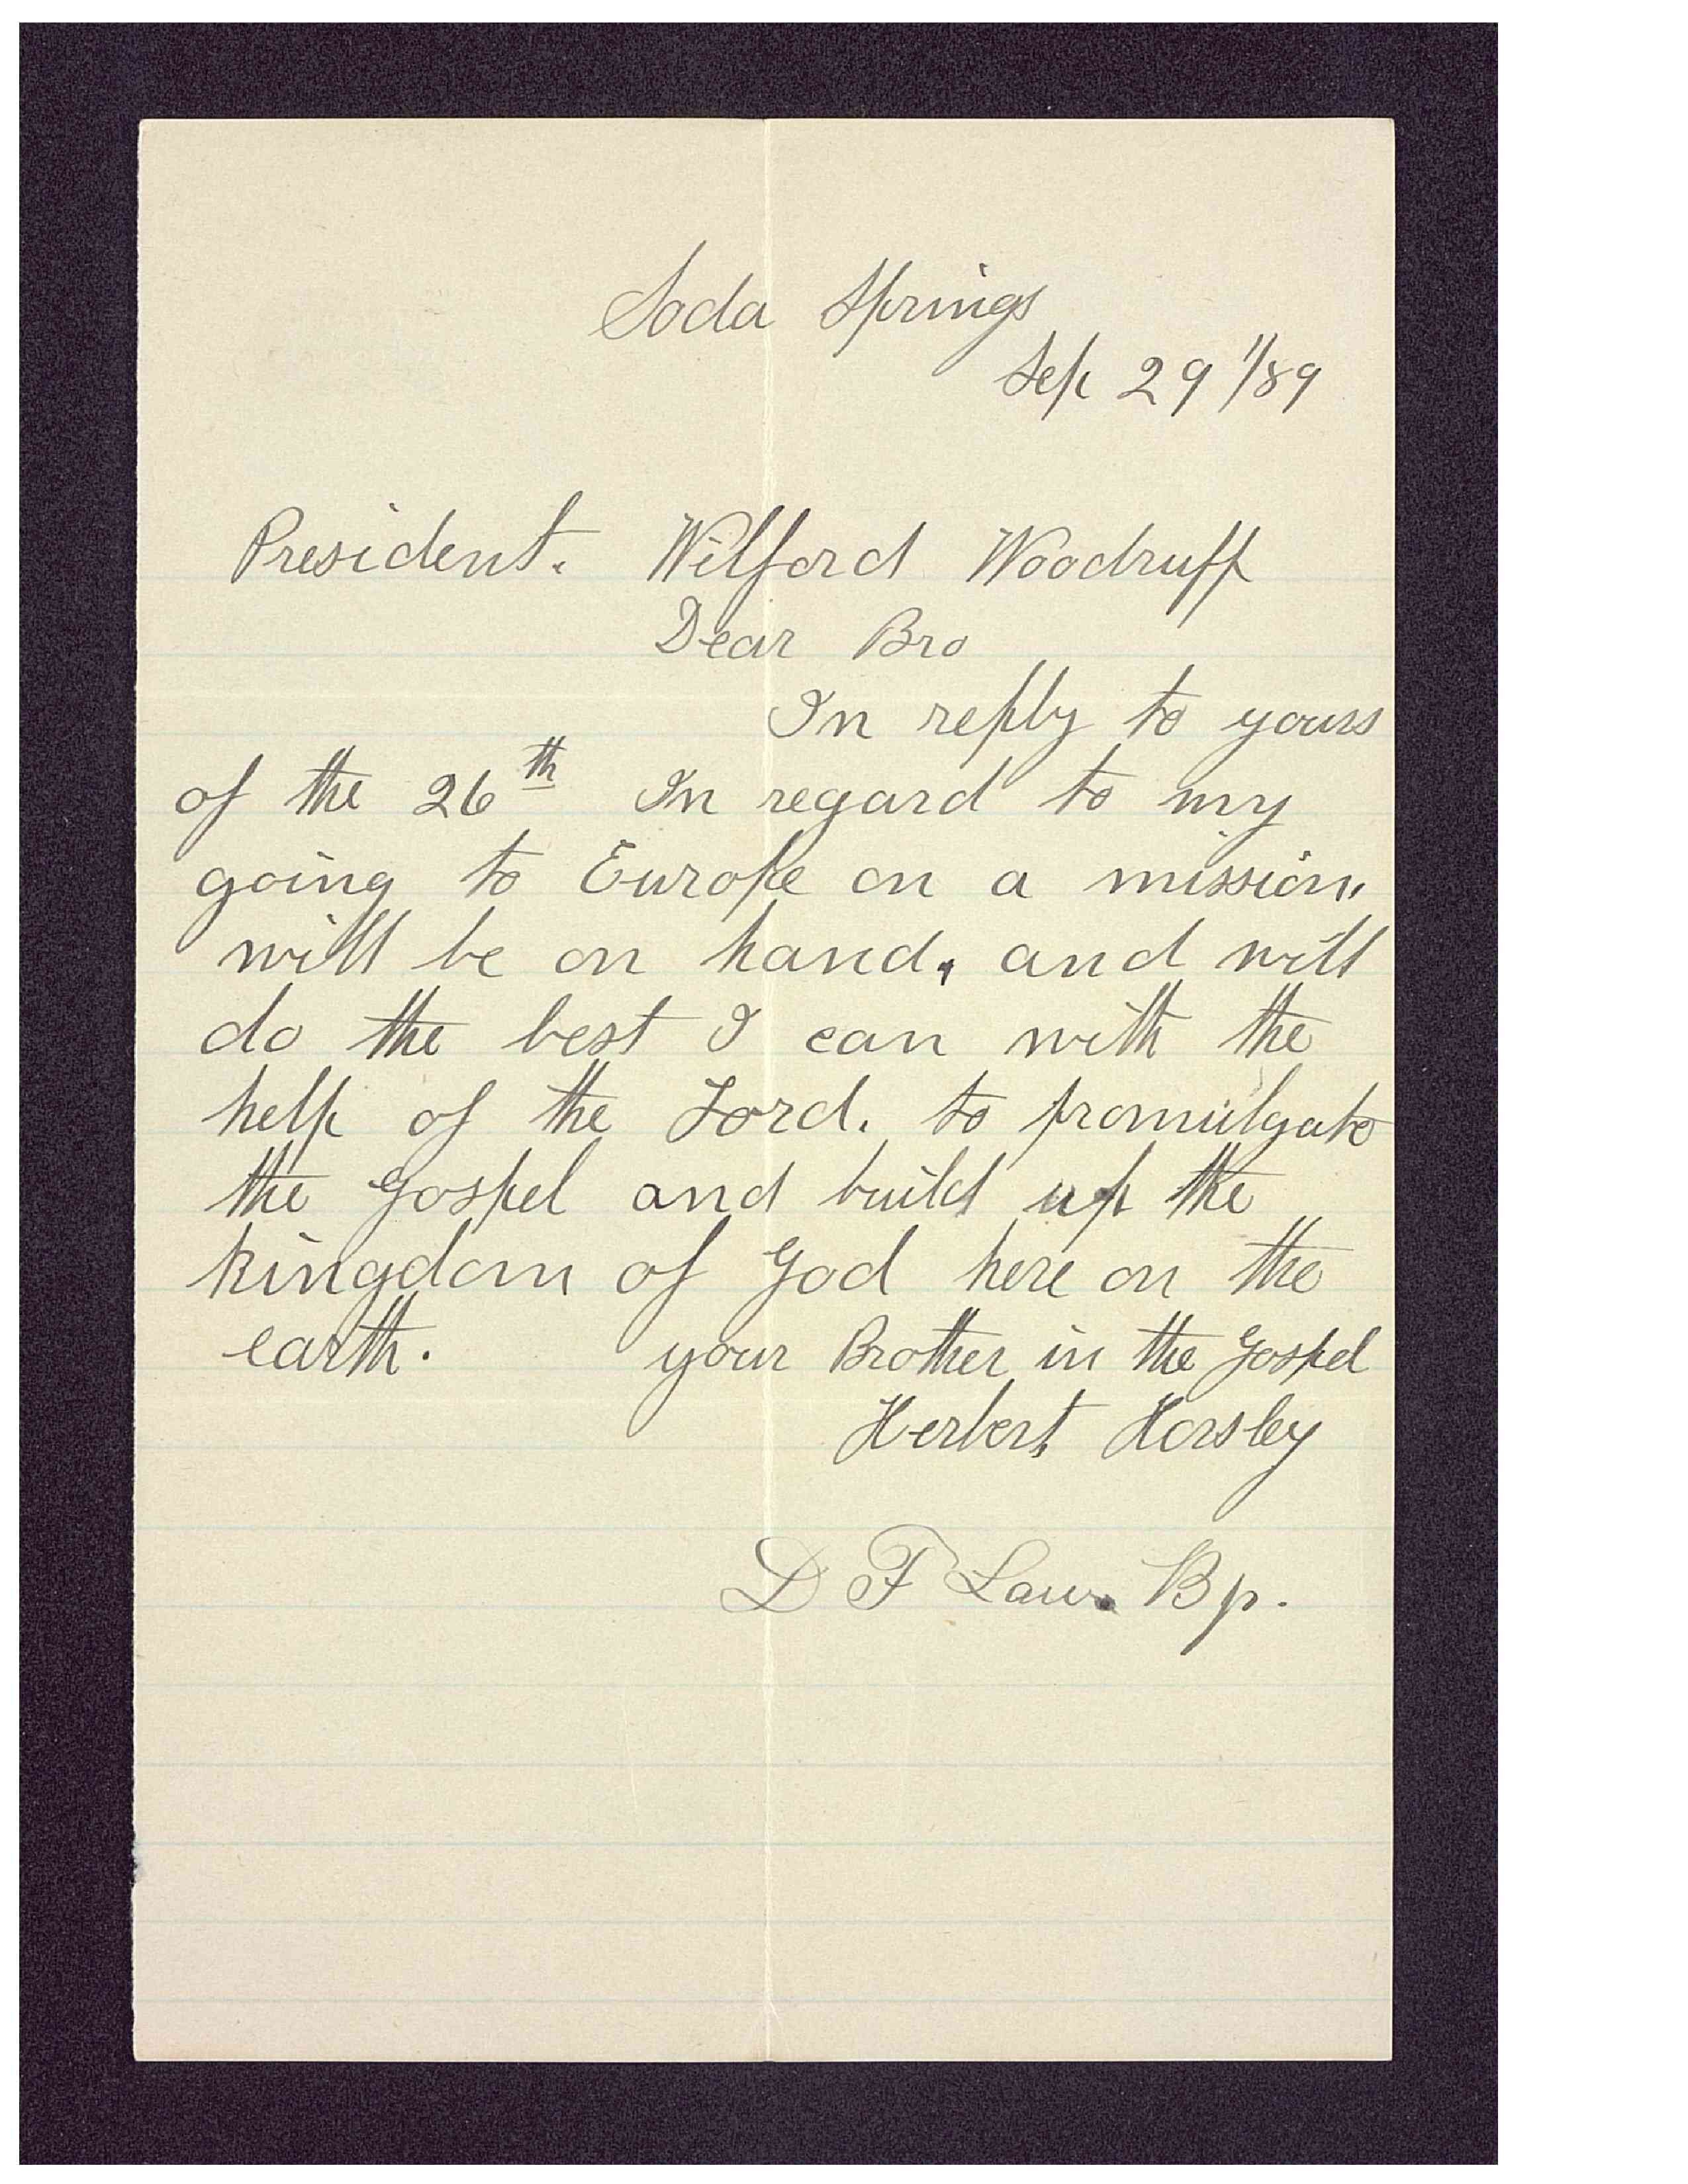 Soda Springs
Sep 29 1/89
President. Wilford Woodruff
Dear Bro
In reply to yours
of the 26th In regard to my
going to Europe on a mission,
will be on hand, and will
do the best I can with the
help of the Lord. to promulgate
the Gospel and build up the
kingdom of God here on the
earth. your Brother in the Gospel
Herbert Horsley
D F Lau. Bp.